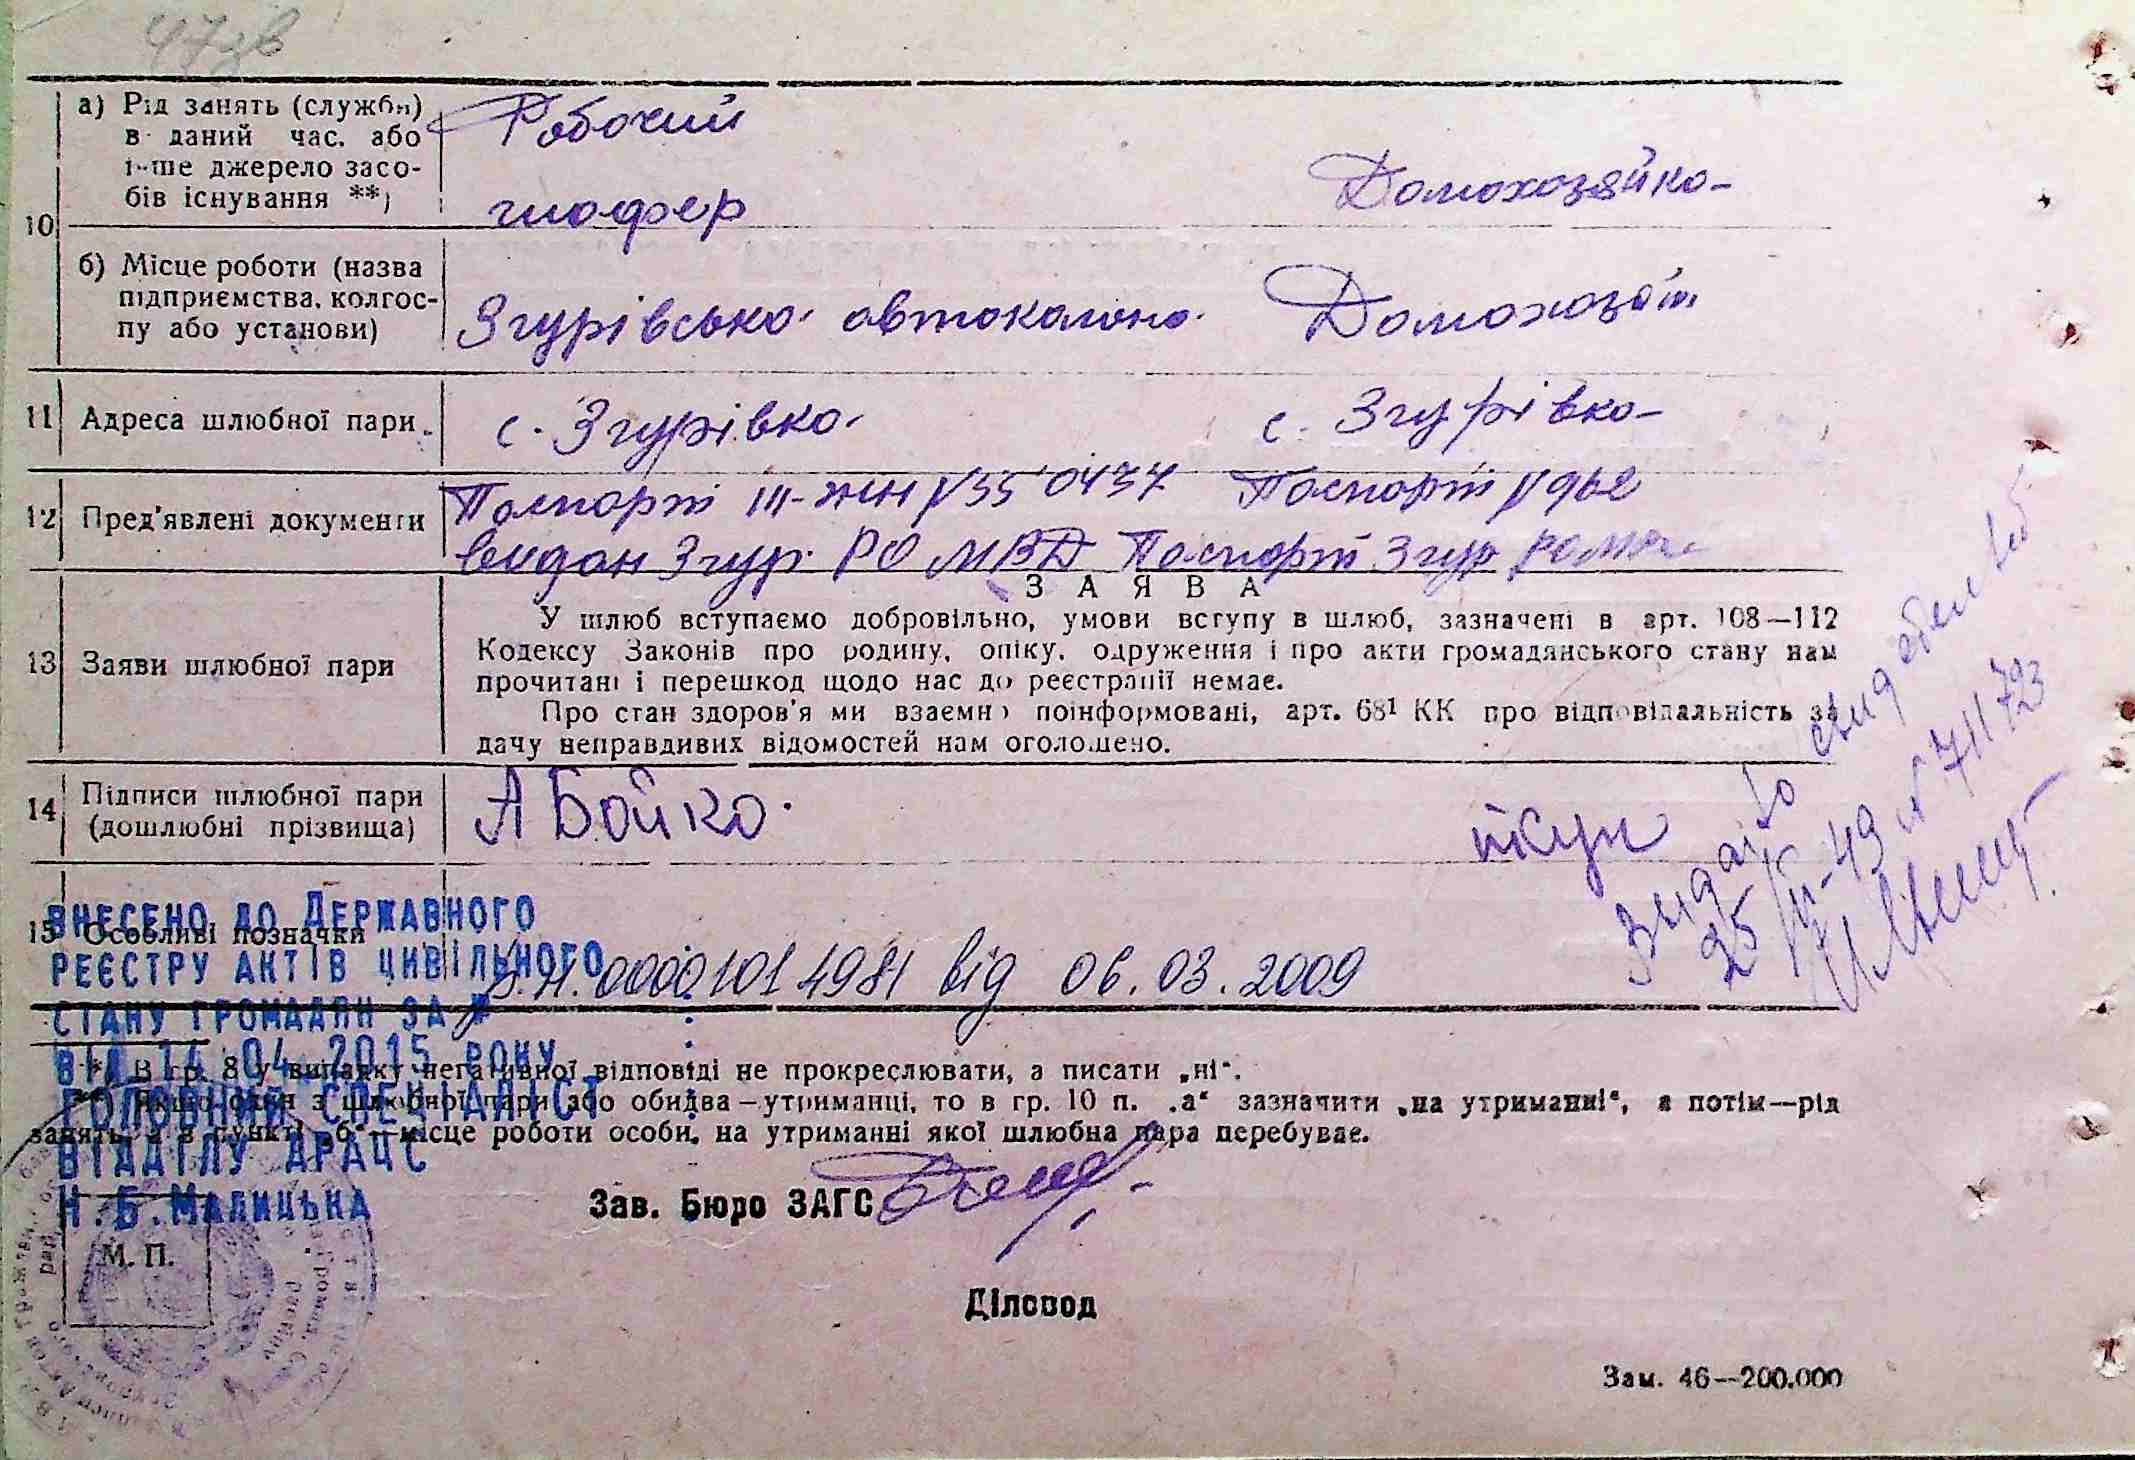 10
а) Рід занять (служби)
в даний час, або
інше джерело засо-
бів існування **)
Робочий
шофер
Домохозяйка
б) Місце роботи (назва
підприємства, колгос-
пу або установи)
Згурівська автоколона
Домохозяй
11 Адреса шлюбної пари
с. Згурівка
с. Згурівка
12 Пред'явлені документи
Паспорт III-ЖН № 550437 Паспорт № 962
видан Згур. РО МВД Паспорт Згур
ЗАЯВА
13 Заяви шлюбної пари
У шлюб вступаємо добровільно, умови вступу в шлюб, зазначені в арт. 108—112
Кодексу Законів про родину, опіку, одруження і про акти громадянського стану нам
прочитані і перешкод щодо нас до реєстрації немає.
Про стан здоров'я ми взаємно поінформовані, арт. 68¹ КК про відповідальність за
дачу неправдивих відомостей нам оголошено.
14 Підписи шлюбної пари
(дошлюбні прізвища)
А Бойко.
15 Особливі позначки
ВНЕСЕНО ДО ДЕРЖАВНОГО
РЕЄСТРУ АКТІВ ЦИВІЛЬНОГО
СТАНУ ГРОМАДЯН ЗА №
00001014981 від 06.03.2009
ВІД 14.04.2015 РОКУ
ГОЛОВНИЙ СПЕЦІАЛІСТ
ВІДДІЛУ ДРАЦС
Н.Б.МАЛИЦЬКА
№ 711793
*) В гр. 8 у випадку негативної відповіді не прокреслювати, а писати „ні“.
**) Якщо один з шлюбної пари або обидва — утриманці, то в гр. 10 п. „а“ зазначити „на утриманні“, а потім—рід
занять, а в пункті „б“—місце роботи особи, на утриманні якої шлюбна пара перебуває.
Зав. Бюро ЗАГС
М. П.
Діловод
Зам. 46—200.000